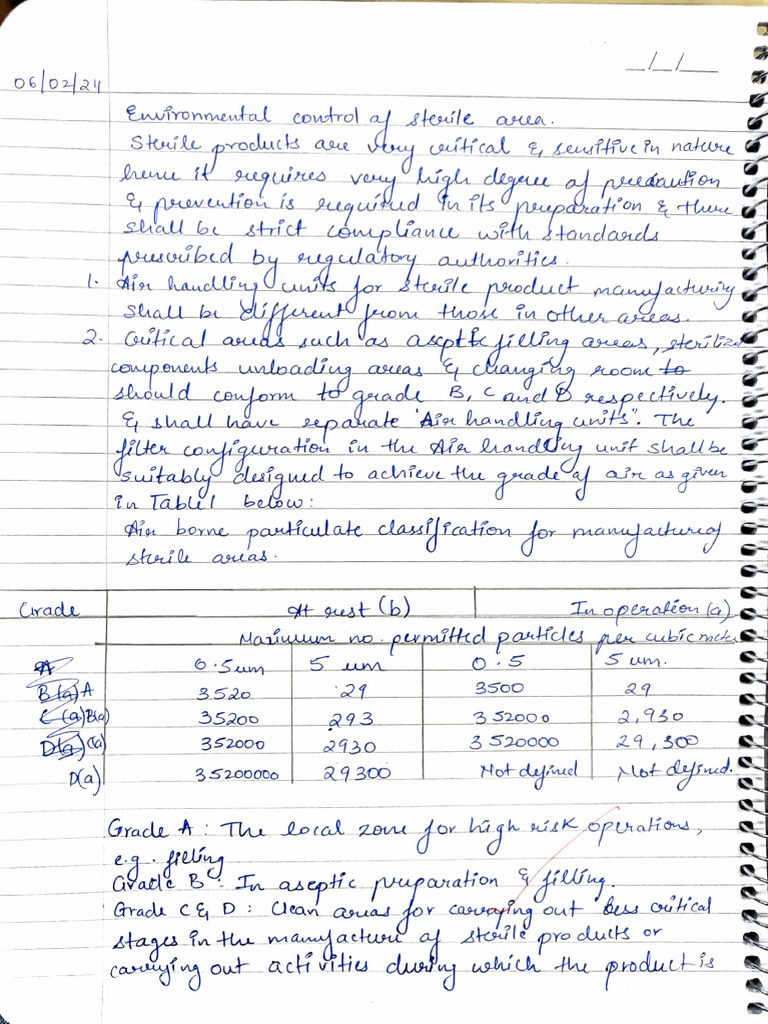 __/__/____
06/02/24
Environmental control of sterile area.
Sterile products are very critical & sensitive in nature
hence it requires very high degree of precaution
& prevention is required in its preparation & there
shall be strict compliance with standards
prescribed by regulatory authorities.
1. Air handling units for sterile product manufacturing
shall be different from those in other areas.
2. Critical areas such as aseptic filling areas, sterilized
components unloading areas & changing room to
should conform to grade B, C and D respectively.
& shall have separate "Air handling units". The
filter configuration in the Air handling unit shall be
suitably designed to achieve the grade of air as given
in Table 1 below:
Air borne particulate classification for manufacture of
sterile areas.
Grade At rest (b) In operation (a)
Maximum no. permitted particles per cubic meter
A 0.5um 5 um 0.5 5 um.
B(a) A 3520 29 3500 29
C(a) B(a) 35200 293 352000 2,930
D(a) C(a) 352000 2930 3520000 29,300
D(a) 35200000 29300 Not defined Not defined.
Grade A : The local zone for high risk operations,
e.g. filling
Grade B : In aseptic preparation & filling.
Grade C & D : Clean areas for carrying out less critical
stages in the manufacture of sterile products or
carrying out activities during which the product is